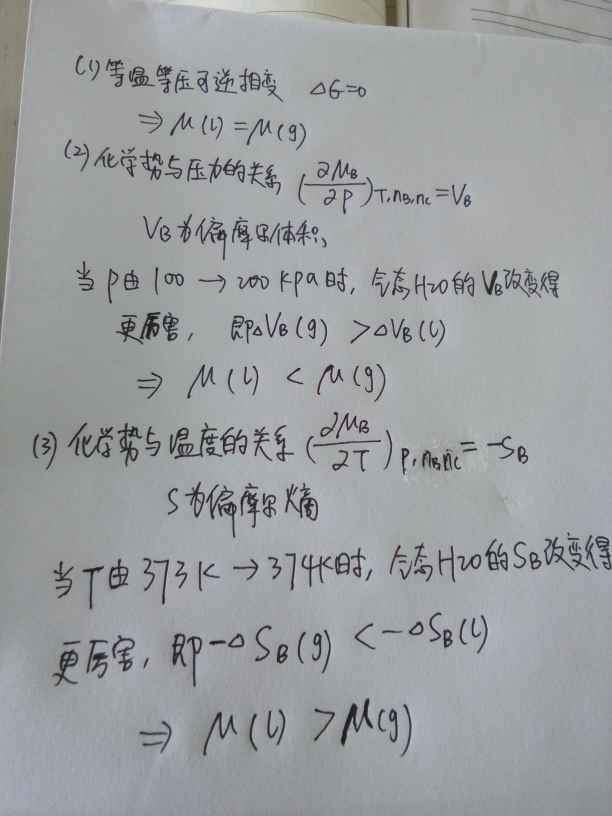 (1) 等温等压可逆相变 ΔG=0
⇒ μ(l) = μ(g)
(2) 化学势与压力的关系 (∂μB/∂P)T,nB,nc = VB
VB为偏摩尔体积,
当P由100 → 200 kPa时, 气态H2O的VB改变得
更厉害, 即ΔVB(g) > ΔVB(l)
⇒ μ(l) < μ(g)
(3) 化学势与温度的关系 (∂μB/∂T)P,nB,nc = -SB
S为偏摩尔熵
当T由373K → 374K时, 气态H2O的SB改变得
更厉害, 即-ΔSB(g) < -ΔSB(l)
⇒ μ(l) > μ(g)